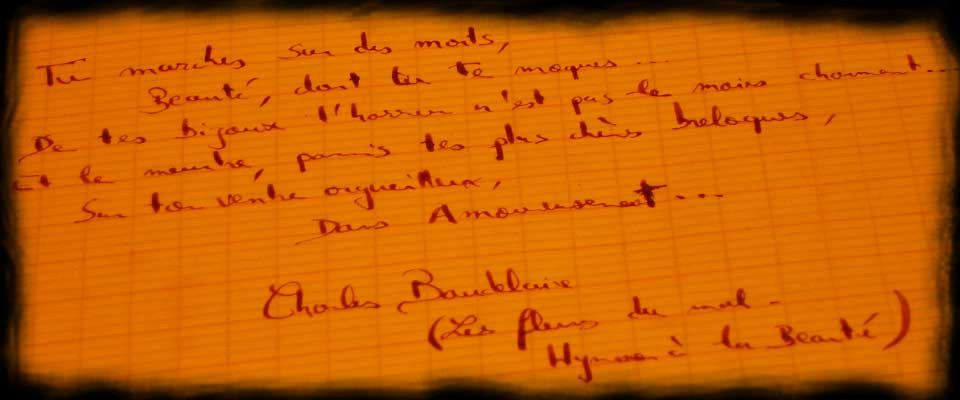 Tu marches sur des morts,
Beauté, dont tu te moques ...
De tes bijoux l'horreur n'est pas le moins charmant...
Et le meurtre, parmis tes plus chères breloques,
Sur ton ventre orgueilleux,
Dans Amoureusement...
Charles Baudelaire
(Les fleurs du mal -
Hymne à la Beauté)